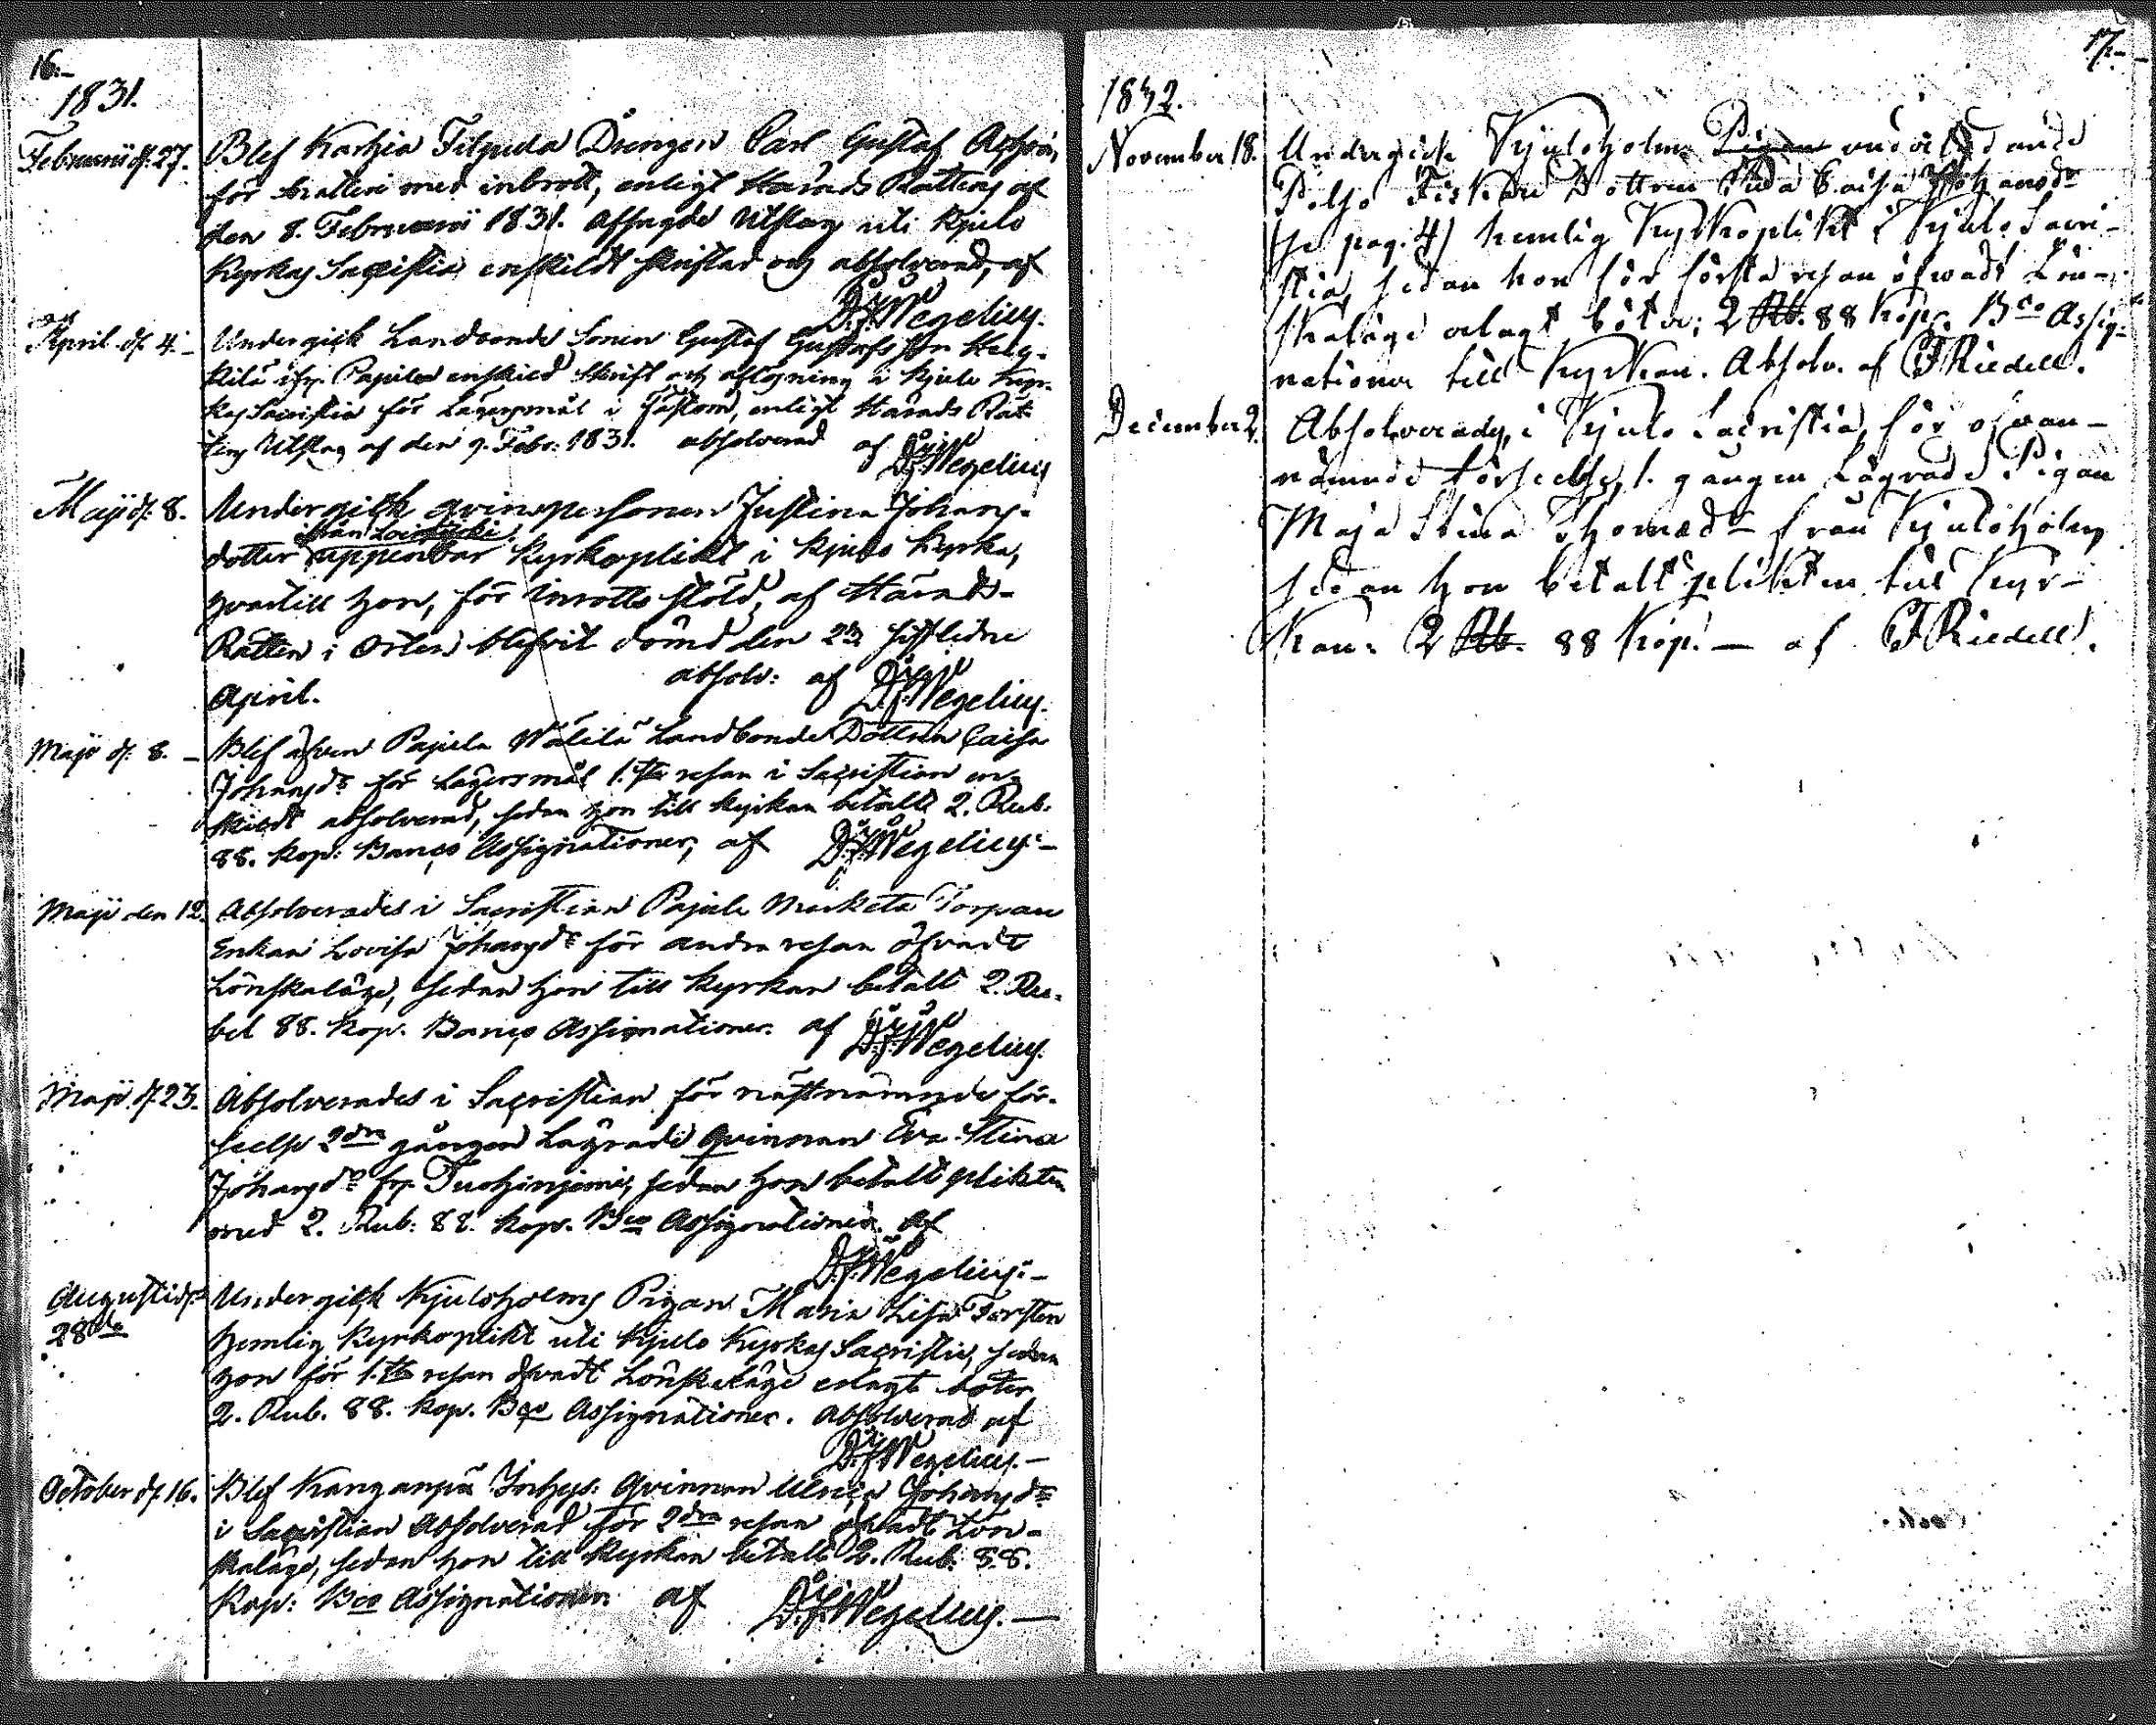 16.-
1831.
Februarii d. 27. Blef Karhia Filpula Drengen Carl Gustaf
för Snatteri med inbrott, enligt Härads Rättens af
den 8. Februarii 1831. afsagde Utslag uti Kjulo
Kyrkas Sacristia enskildt skriftad och absolverad, af
D.F. Wegelius.
April d. 4. Undergick Landbonde Sonen Gustaf Gustafsson
ifr. Papila enskild Skrift och aflösning i Kjulo Kyr-
kas Sacristia för Lägersmål i fästom, enligt Härads Rät-
tens Utslag af den 9. Febr: 1831. absolverad af D.F. Wegelius
Maji d. 8. Undergick qvinspersonen Justina Johans-
från Loimijoki
dotter uppenbar Kyrkoplikt i Kjulo Kyrka,
hvartill hon, för inrotts stöld, af Härads-
Rätten i Orten blifvit dömd den 23 sistledne
April. absolv: af D.F. Wegelius.
Maji d. 8. – Blef äfven Pajula Wälilä Landbonde Dottren Caisa
Johansdr för Lägersmål 1.sta resan i Sacristian en-
skildt absolverad, sedan hon till kyrkan betalt 2. Rub:
88. kop: Banco Assignationer, af D.F. Wegelius.–
Maji den 12. Absolverades i Sacristian Pajula Marketa Torpan
Enkan Lovisa Johansdr för andra resan öfvadt
Lönskaläge, sedan hon till Kyrkan betalt 2. Ru-
bel 88. kop. Banco Assignationer. af D.F. Wegelius.
Maji d. 23. Absolverades i Sacristian för nästnämnde för-
seelse 2dra gången Lägrade qvinnan Eva Stina
Johansdr fr. Tuohiniemi, sedan hon betalt plikten
med 2. Rub: 88. kop. Bco Assignationer. af
D.F. Wegelius.–
Augusti d. Undergick Kjuloholms Pigan Maria Lisa Torsten
28de hemlig Kyrkoplikt uti Kjulo Kyrkas Sacristia, sedan
hon för 1.sta resan öfvadt Lönskaläge erlagt böter
2. Rub. 88. kop. Bco Assignationer. Absolverad af
D.F. Wegelius.–
October d. 16. Blef Kanganpää Inhys: qvinnan Ulrica Johansdr
i Sacristian absolverad för 2dra resan öfvadt Lön-
skaläge, sedan hon till Kyrkan betalt 2. Rub: 88.
Kop: Bco Assignationer af D.F. Wegelius.–
17.-
1832.
November 18. Undergick Kjuloholms Pigan
Fiskare Dottren Caisa Johansdr
(se pag. 4) hemlig Kyrkoplikt i Kjulo Sacri-
stia, sedan hon för första resan öfwadt Lön-
skaläge erlagt böter; 2 Rb. 88 Kop. Bco Assig-
nationer till Kyrkan. Absolv. af F Riedell.
December 2. Absolverades, i Kjulo Sacristia, för ofvan-
nämnde förseelse, 1. gången Lägrade Pigan
Maja Stina Thomædr från Kjuloholm
sedan hon betalt plikten till Kyr-
kan: 2 Rb. 88 Kop. — af F Riedell.